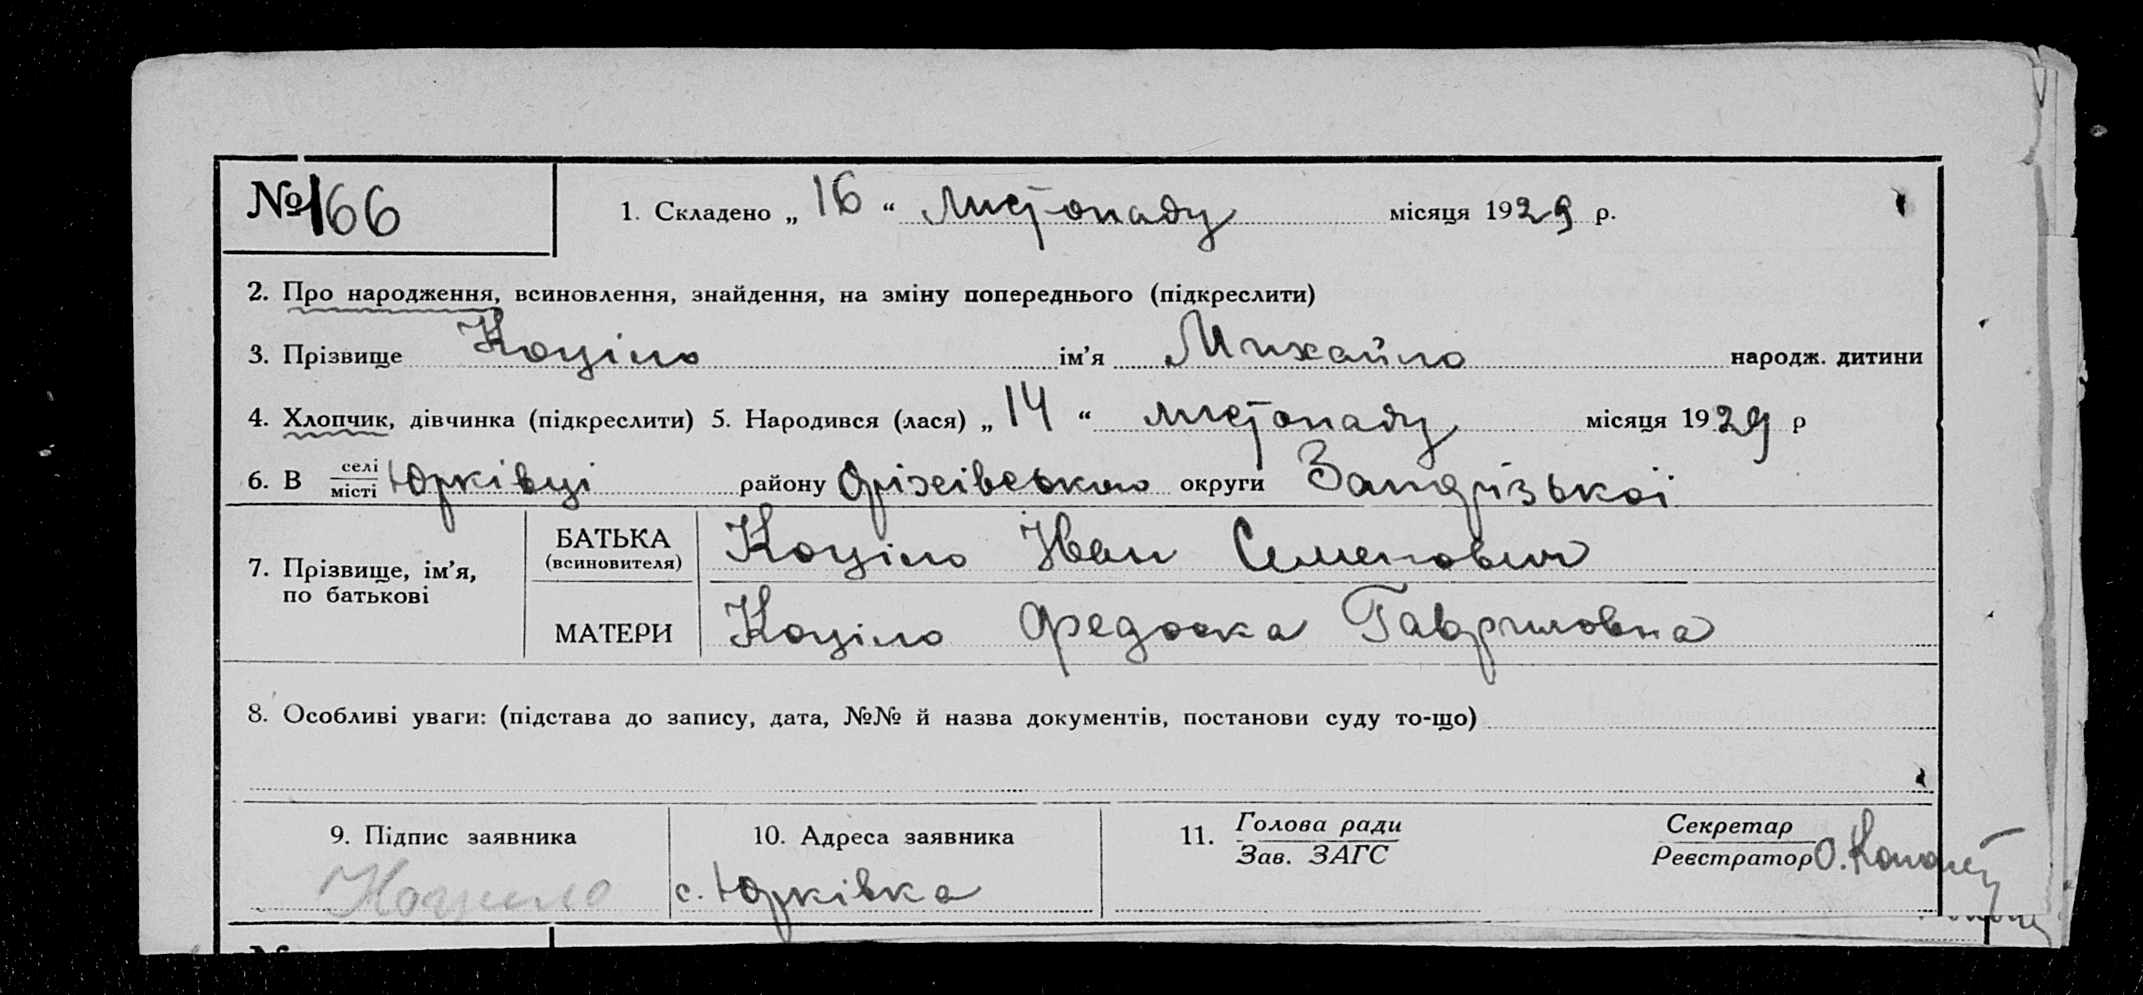 № 166 1. Складено „ 16 “ листопаду місяця 1929 р.
2. Про народження, всиновлення, знайдення, на зміну попереднього (підкреслити)
3. Прізвище Коціло ім’я Михайло народж. дитини
4. Хлопчик, дівчинка (підкреслити) 5. Народився (лася) „ 14 “ листопаду місяця 1929 р
6. В селі
місті Юрківці району Оріхівського округи Запорізької
7. Прізвище, ім’я,
по батькові
БАТЬКА
(всиновителя)
Коціло Іван Семенович
МАТЕРИ Коціло Федоска Гавриловна
8. Особливі уваги: (підстава до запису, дата, №№ й назва документів, постанови суду то-що)
9. Підпис заявника
Коцило
10. Адреса заявника
с. Юрківка
11. Голова ради
Зав. ЗАГС
Секретар
Реєстратор О.